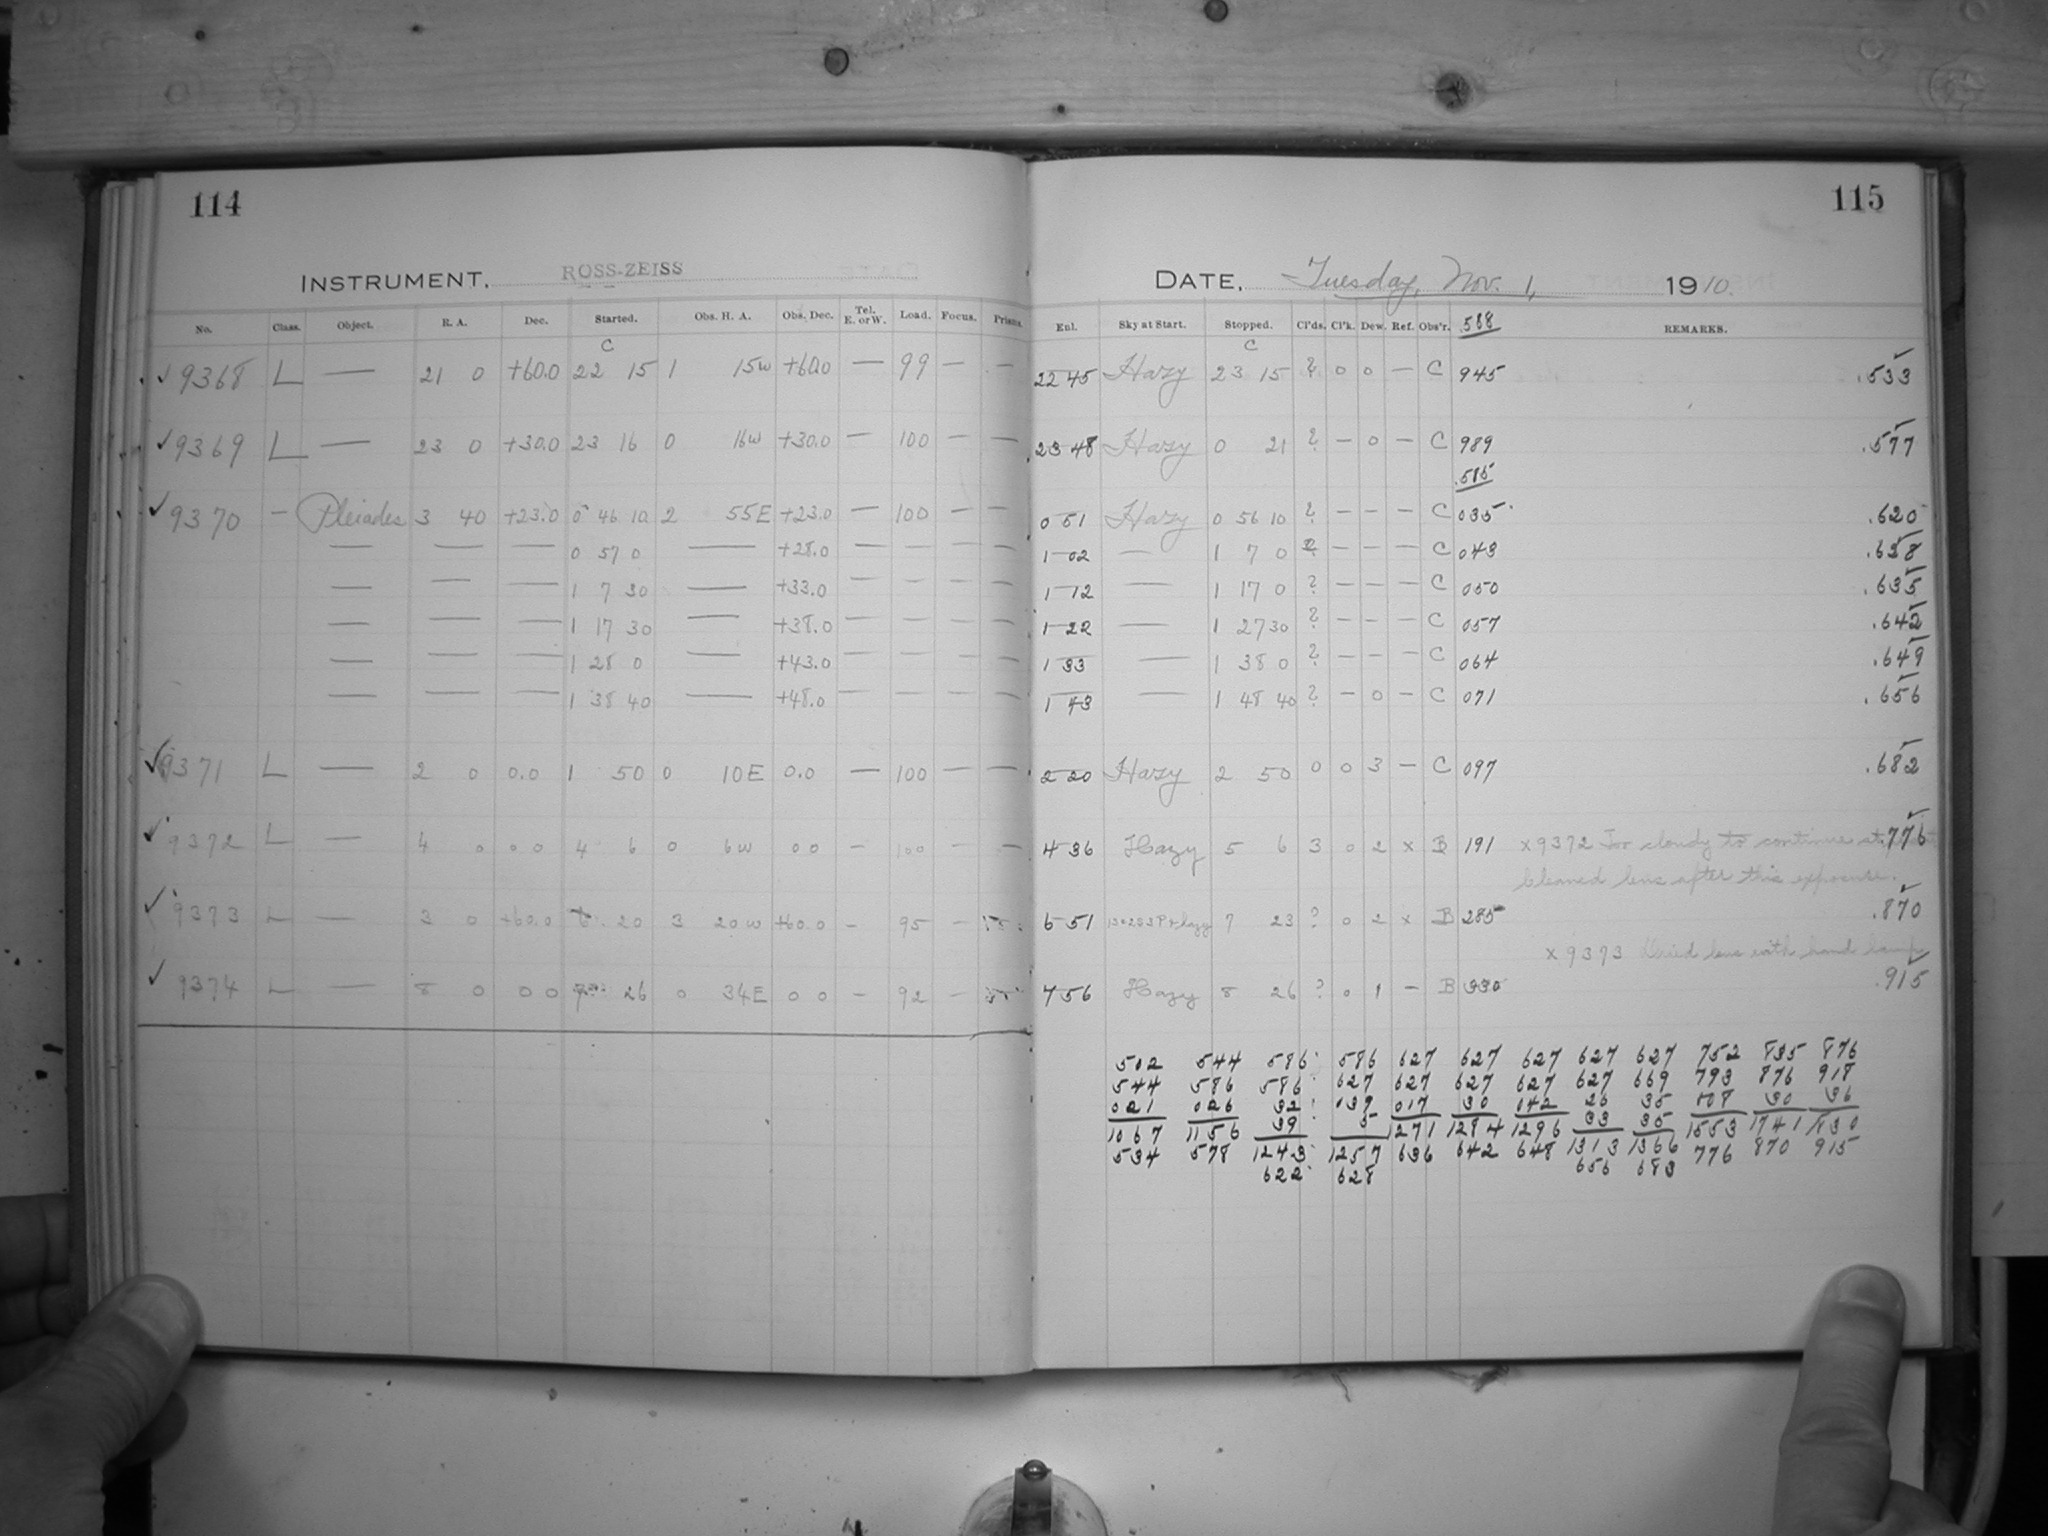 114
INSTRUMENT, ROSS-ZEISS
No. Class. Object. R. A. Dec. Started. Obs. H. A. Obs. Dec. Tel. E. or W. Load. Focus. Prisms.
C
✓ 9368 L — 21 0 +60.0 22 15 1 15w +60.0 — 99 — —
✓ 9369 L — 23 0 +30.0 23 16 0 16w +30.0 — 100 — —
✓ 9370 — Pleiades 3 40 +23.0 0 46 10 2 55E +23.0 — 100 — —
— — — 0 57 0 — +28.0 — — — —
— — — 1 7 30 — +33.0 — — — —
— — — 1 17 30 — +38.0 — — — —
— — — 1 28 0 — +43.0 — — — —
— — — 1 38 40 — +48.0 — — — —
✓ 9371 L — 2 0 0.0 1 50 0 10E 0.0 — 100 — —
✓ 9372 L — 4 0 0 0 4 6 0 6w 0 0 — 100 — —
✓ 9373 L — 3 0 +60.0 6 20 3 20w +60.0 — 95 —
✓ 9374 L — 8 0 0 0 7 26 0 34E 0 0 — 92 —
115
DATE, Tuesday, Nov. 1, 1910.
Enl. Sky at Start. Stopped. Cl'ds. Cl'k. Dew. Ref. Obs'r. .588 REMARKS.
C
22 45 Hazy 23 15 ? 0 0 — C 945 .533
23 48 Hazy 0 21 ? — 0 — C 989 .577
.585
0 51 Hazy 0 56 10 ? — — — C 035 .620
1 02 — 1 7 0 ? — — — C 043 .628
1 12 — 1 17 0 ? — — — C 050 .635
1 22 — 1 27 30 ? — — — C 057 .642
1 33 — 1 38 0 ? — — — C 064 .649
1 43 — 1 48 40 ? — 0 — C 071 .656
2 20 Hazy 2 50 0 0 3 — C 097 .682
4 36 Hazy 5 6 3 0 2 x B 191 x 9372 Too cloudy to continue .776
cleaned lens after this exposure.
6 51 hazy 7 23 ? 0 2 x B 285 .870
x 9373 Dried lens with hand lamp
7 56 Hazy 8 26 ? 0 1 — B 330 .915
502 544 586 586 627 627 627 627 627 752 835 876
544 586 586 627 627 627 627 627 669 793 876 918
021 026 32 039 017 30 042 26 35 108 30 36
39 5 33 35
1067 1156 1243 1257 1271 1284 1296 1313 1366 1553 1741 1830
534 578 622 628 636 642 648 656 683 776 870 915